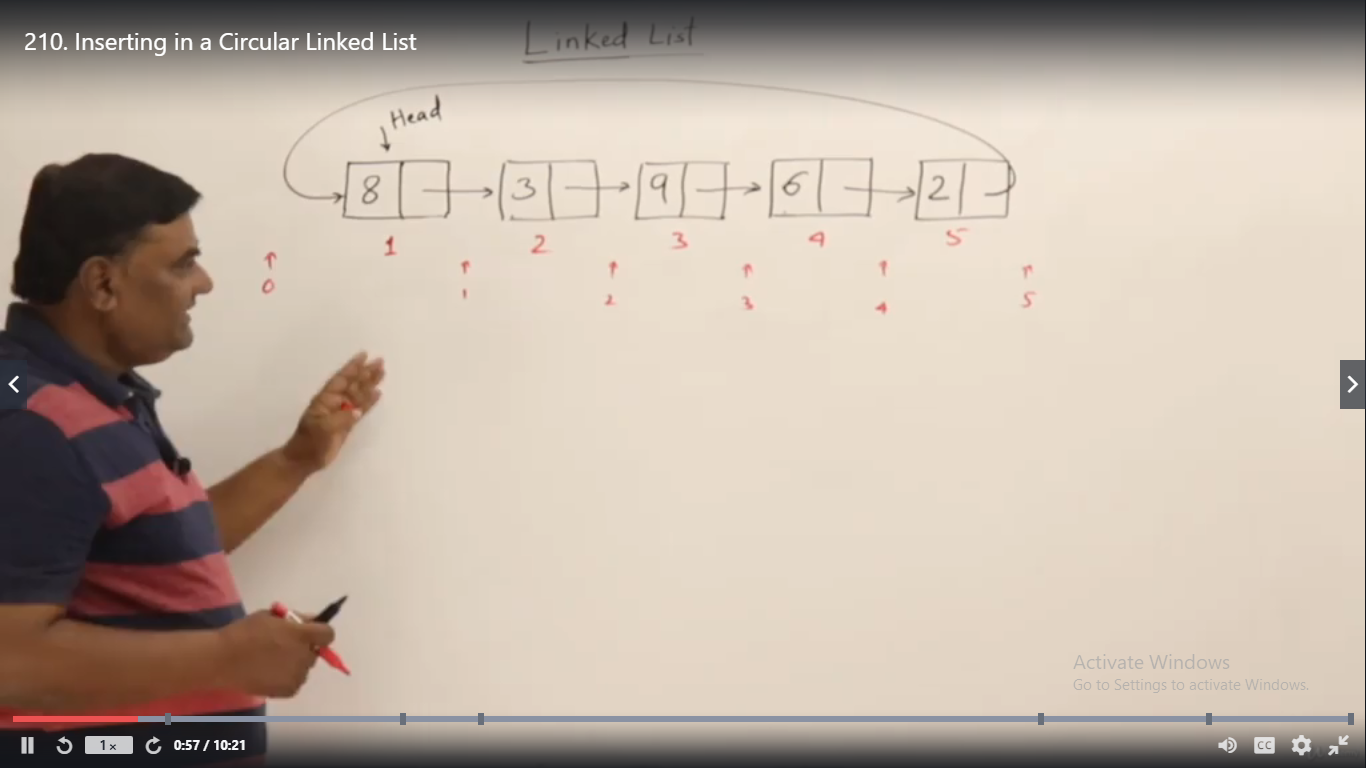 210. Inserting in a Circular Linked List
Linked List
Head
8 3 9 6 2
1 2 3 4 5
0 1 2 3 4 5
Activate Windows
Go to Settings to activate Windows.
1x 0:57 / 10:21 CC